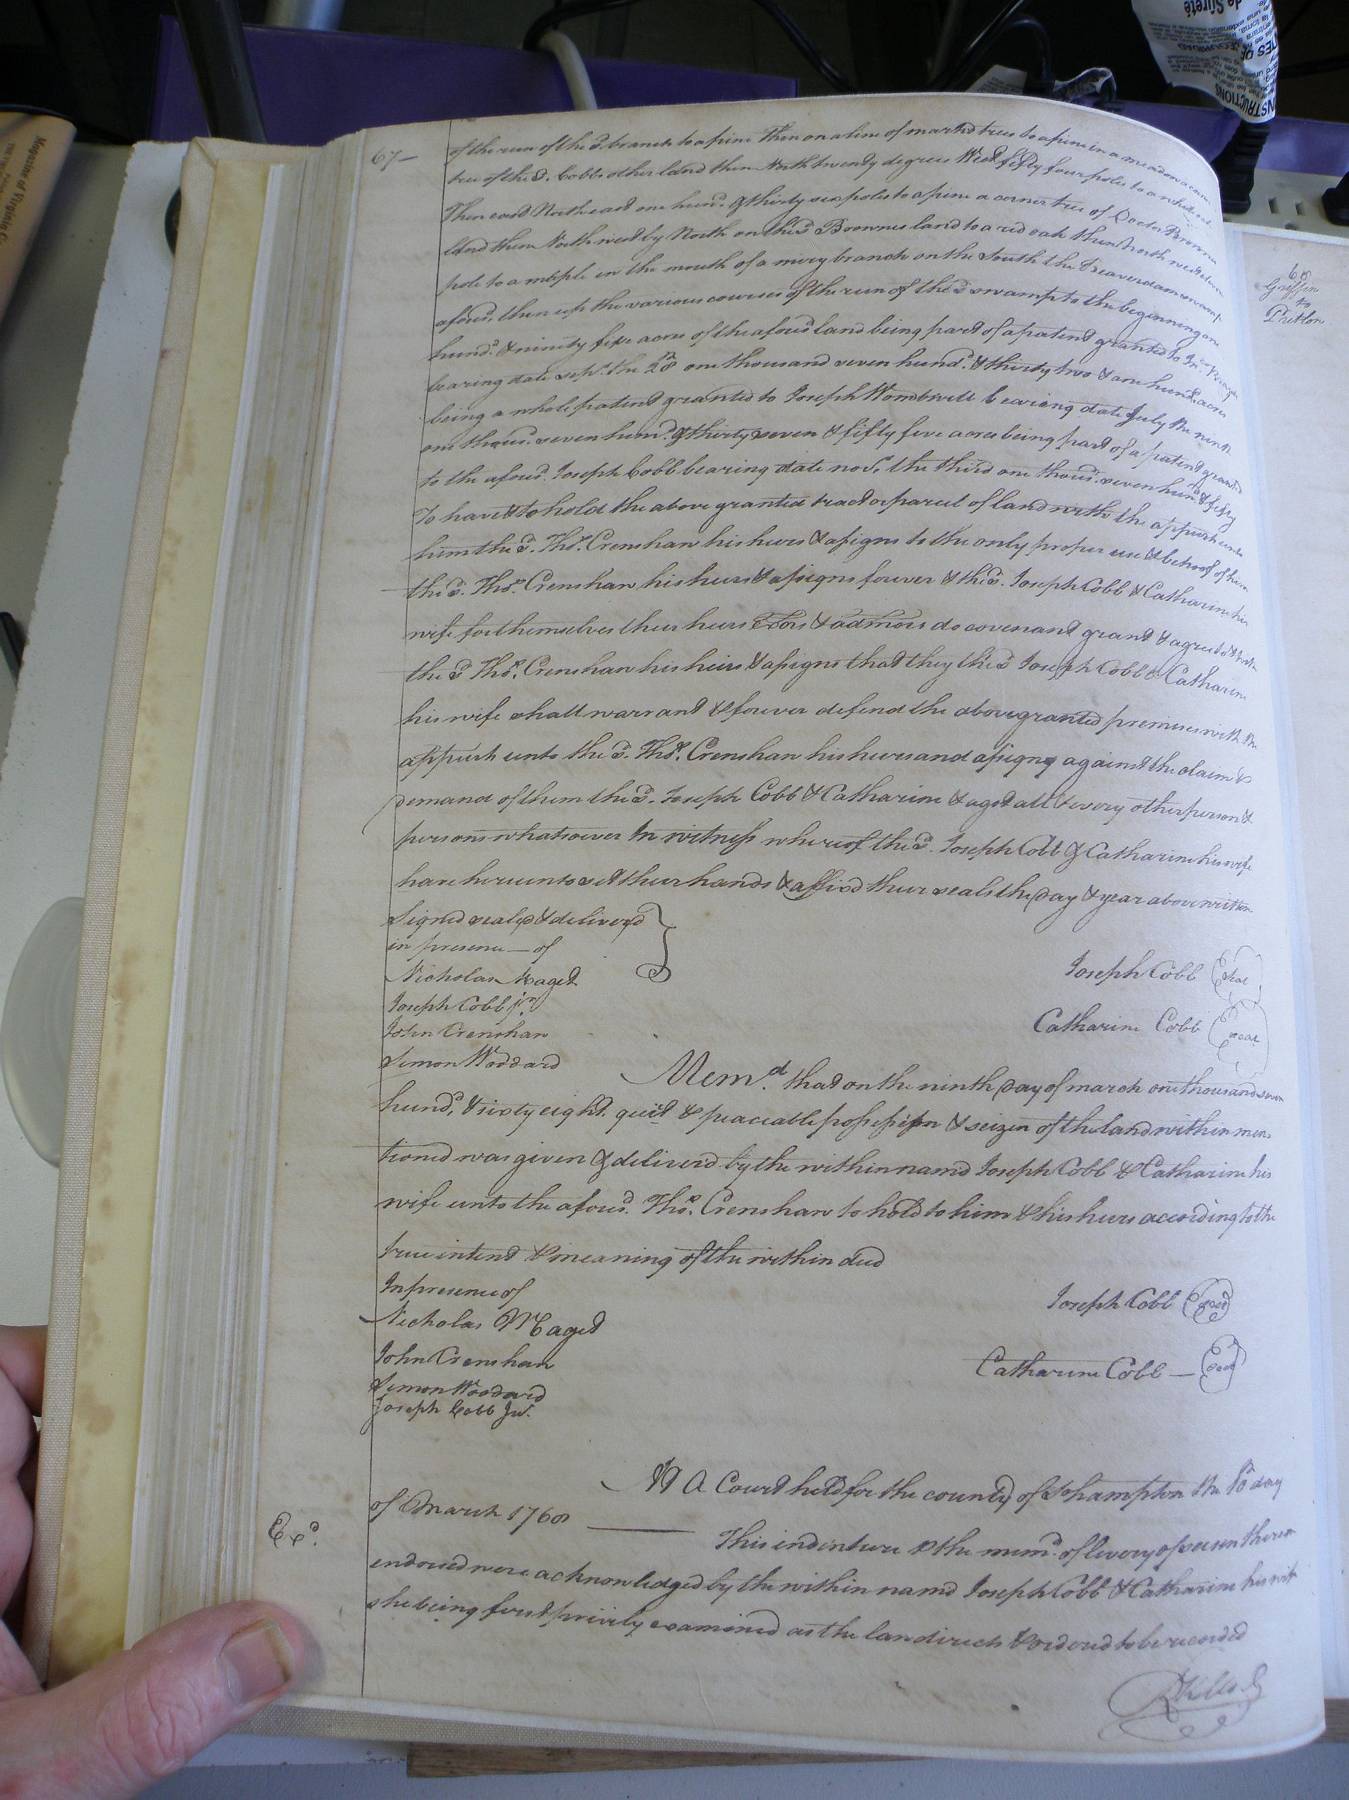 67—
of the run of the sd. branch to a pine then on a line of markd trees to a pine in a meadow a corner
tree of the sd. Cobbs other land then North twenty degrees West fifty four poles to a white oak
Then east North east one hund. & thirty six poles to a pine a corner tree of Doctor Browns
land then North west by North on the sd Brownes land to a red oak then North west
pole to a maple in the mouth of a miery branch on the South the Beaverdam swamp
aforsd. then up the various courses of the run of the sd swamp to the beginning one
hundd. & ninety five acres of the aforsd land being part of a patent granted to Jno.
bearing date sept. the 28 one thousand seven hundd. & thirty two & one hund. acres
being a whole patent granted to Joseph Wombwell bearing date July the ninth
one thousd. seven hund. & thirty seven & fifty five acres being part of a patent granted
to the aforsd. Joseph Cobb bearing date novr. the third one thousd. seven hund & fifty
To have & to hold the above granted tract or parcel of land with the appurts unto
him the sd. Thos. Crenshaw his heirs & assigns to the only proper use & behoof of him
the sd. Thos. Crenshaw his heirs & assigns forever & the sd. Joseph Cobb & Catharine his
wife for themselves their heirs Exors & admors do covenant grant & agree to & with
the sd Thos. Crenshaw his heirs & assigns that they the sd Joseph Cobb & Catharine
his wife shall warrant & forever defend the above granted premises with the
appurts unto the sd. Thos. Crenshaw his heirs and assigns against the claim &
demand of them the sd. Joseph Cobb & Catharine & agst all & every other person &
persons whatsoever In witness whereof the sd. Joseph Cobb & Catharine his wife
have hereunto set their hands & affixd their seals the day & year above written
Signed sealed & deliverd
in presence — of
Nicholas Maget
Joseph Cobb jr.
John Crenshaw
Simon Woodard
Joseph Cobb Seal
Catharine Cobb Seal
Memd. that on the ninth day of march one thousand seven
hundd. & sixty eight quiet & peaceable possession & seizen of the land within men
tioned was given & deliverd by the within namd Joseph Cobb & Catharine his
wife unto the aforsd. Thos. Crenshaw to hold to him & his heirs according to the
true intent & meaning of the within deed
In presence of
Nicholas Maget
John Crenshaw
Simon Woodard
Joseph Cobb Jur.
Joseph Cobb Seal
Catharine Cobb — Seal
At A Court held for the county of Sohampton the 10 day
of March 1768
This indenture & the memd. of livery of seisen thereon
Exd.
endorsed were acknowledged by the within namd Joseph Cobb & Catharine his wife
she being first privily examined as the law directs & ordered to be recorded
68
Griffin
to